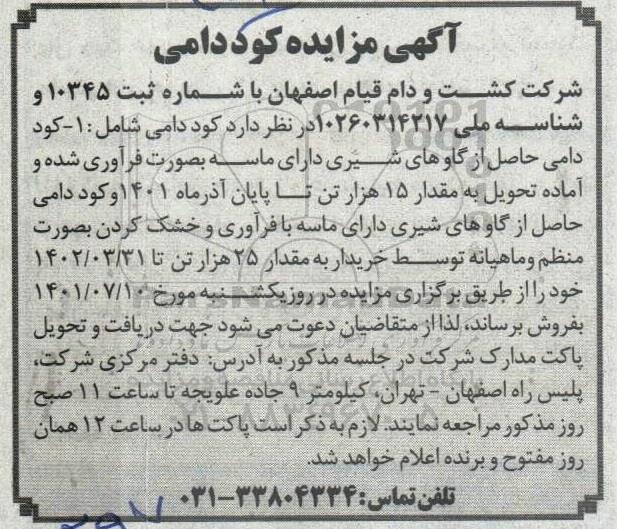 آگهی مزایده کود دامی
شرکت کشت و دام قیام اصفهان با شماره ثبت ۱۰۳۴۵ و
شناسه ملی ۱۰۲۶۰۳۱۴۲۱۷در نظر دارد کود دامی شامل: ۱-کود
دامی حاصل از گاو های شیری دارای ماسه بصورت فرآوری شده و
آماده تحویل به مقدار ۱۵ هزار تن تا پایان آذرماه ۱۴۰۱وکود دامی
حاصل از گاو های شیری دارای ماسه با فرآوری و خشک کردن بصورت
منظم وماهیانه توسط خریدار به مقدار ۲۵ هزار تن تا ۱۴۰۲/۰۳/۳۱
خود را از طریق برگزاری مزایده در روز یکشنبه مورخ ۱۴۰۱/۰۷/۱۰
بفروش برساند، لذا از متقاضیان دعوت می شود جهت دریافت و تحویل
پاکت مدارک شرکت در جلسه مذکور به آدرس: دفتر مرکزی شرکت،
پلیس راه اصفهان - تهران، کیلومتر ۹ جاده علویجه تا ساعت ۱۱ صبح
روز مذکور مراجعه نمایند. لازم به ذکر است پاکت ها در ساعت ۱۲ همان
روز مفتوح و برنده اعلام خواهد شد.
تلفن تماس: ۳۳۸۰۴۳۳۴-۰۳۱